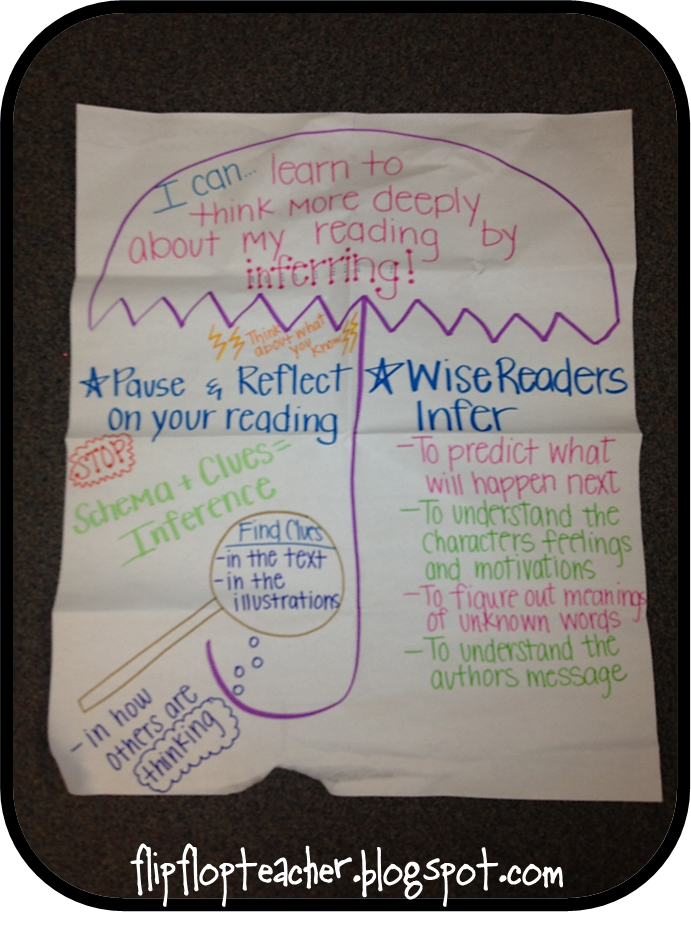 I can... learn to
think more deeply
about my reading by
inferring!
Think
about what
you know
Pause & Reflect
on your reading
STOP
Schema + Clues =
Inference
Find Clues
-in the text
-in the
illustrations
- in how
others are
thinking
Wise Readers
Infer
-To predict what
will happen next
-To understand the
characters feelings
and motivations
-To figure out meanings
of unknown words
-To understand the
authors message
flipflopteacher.blogspot.com